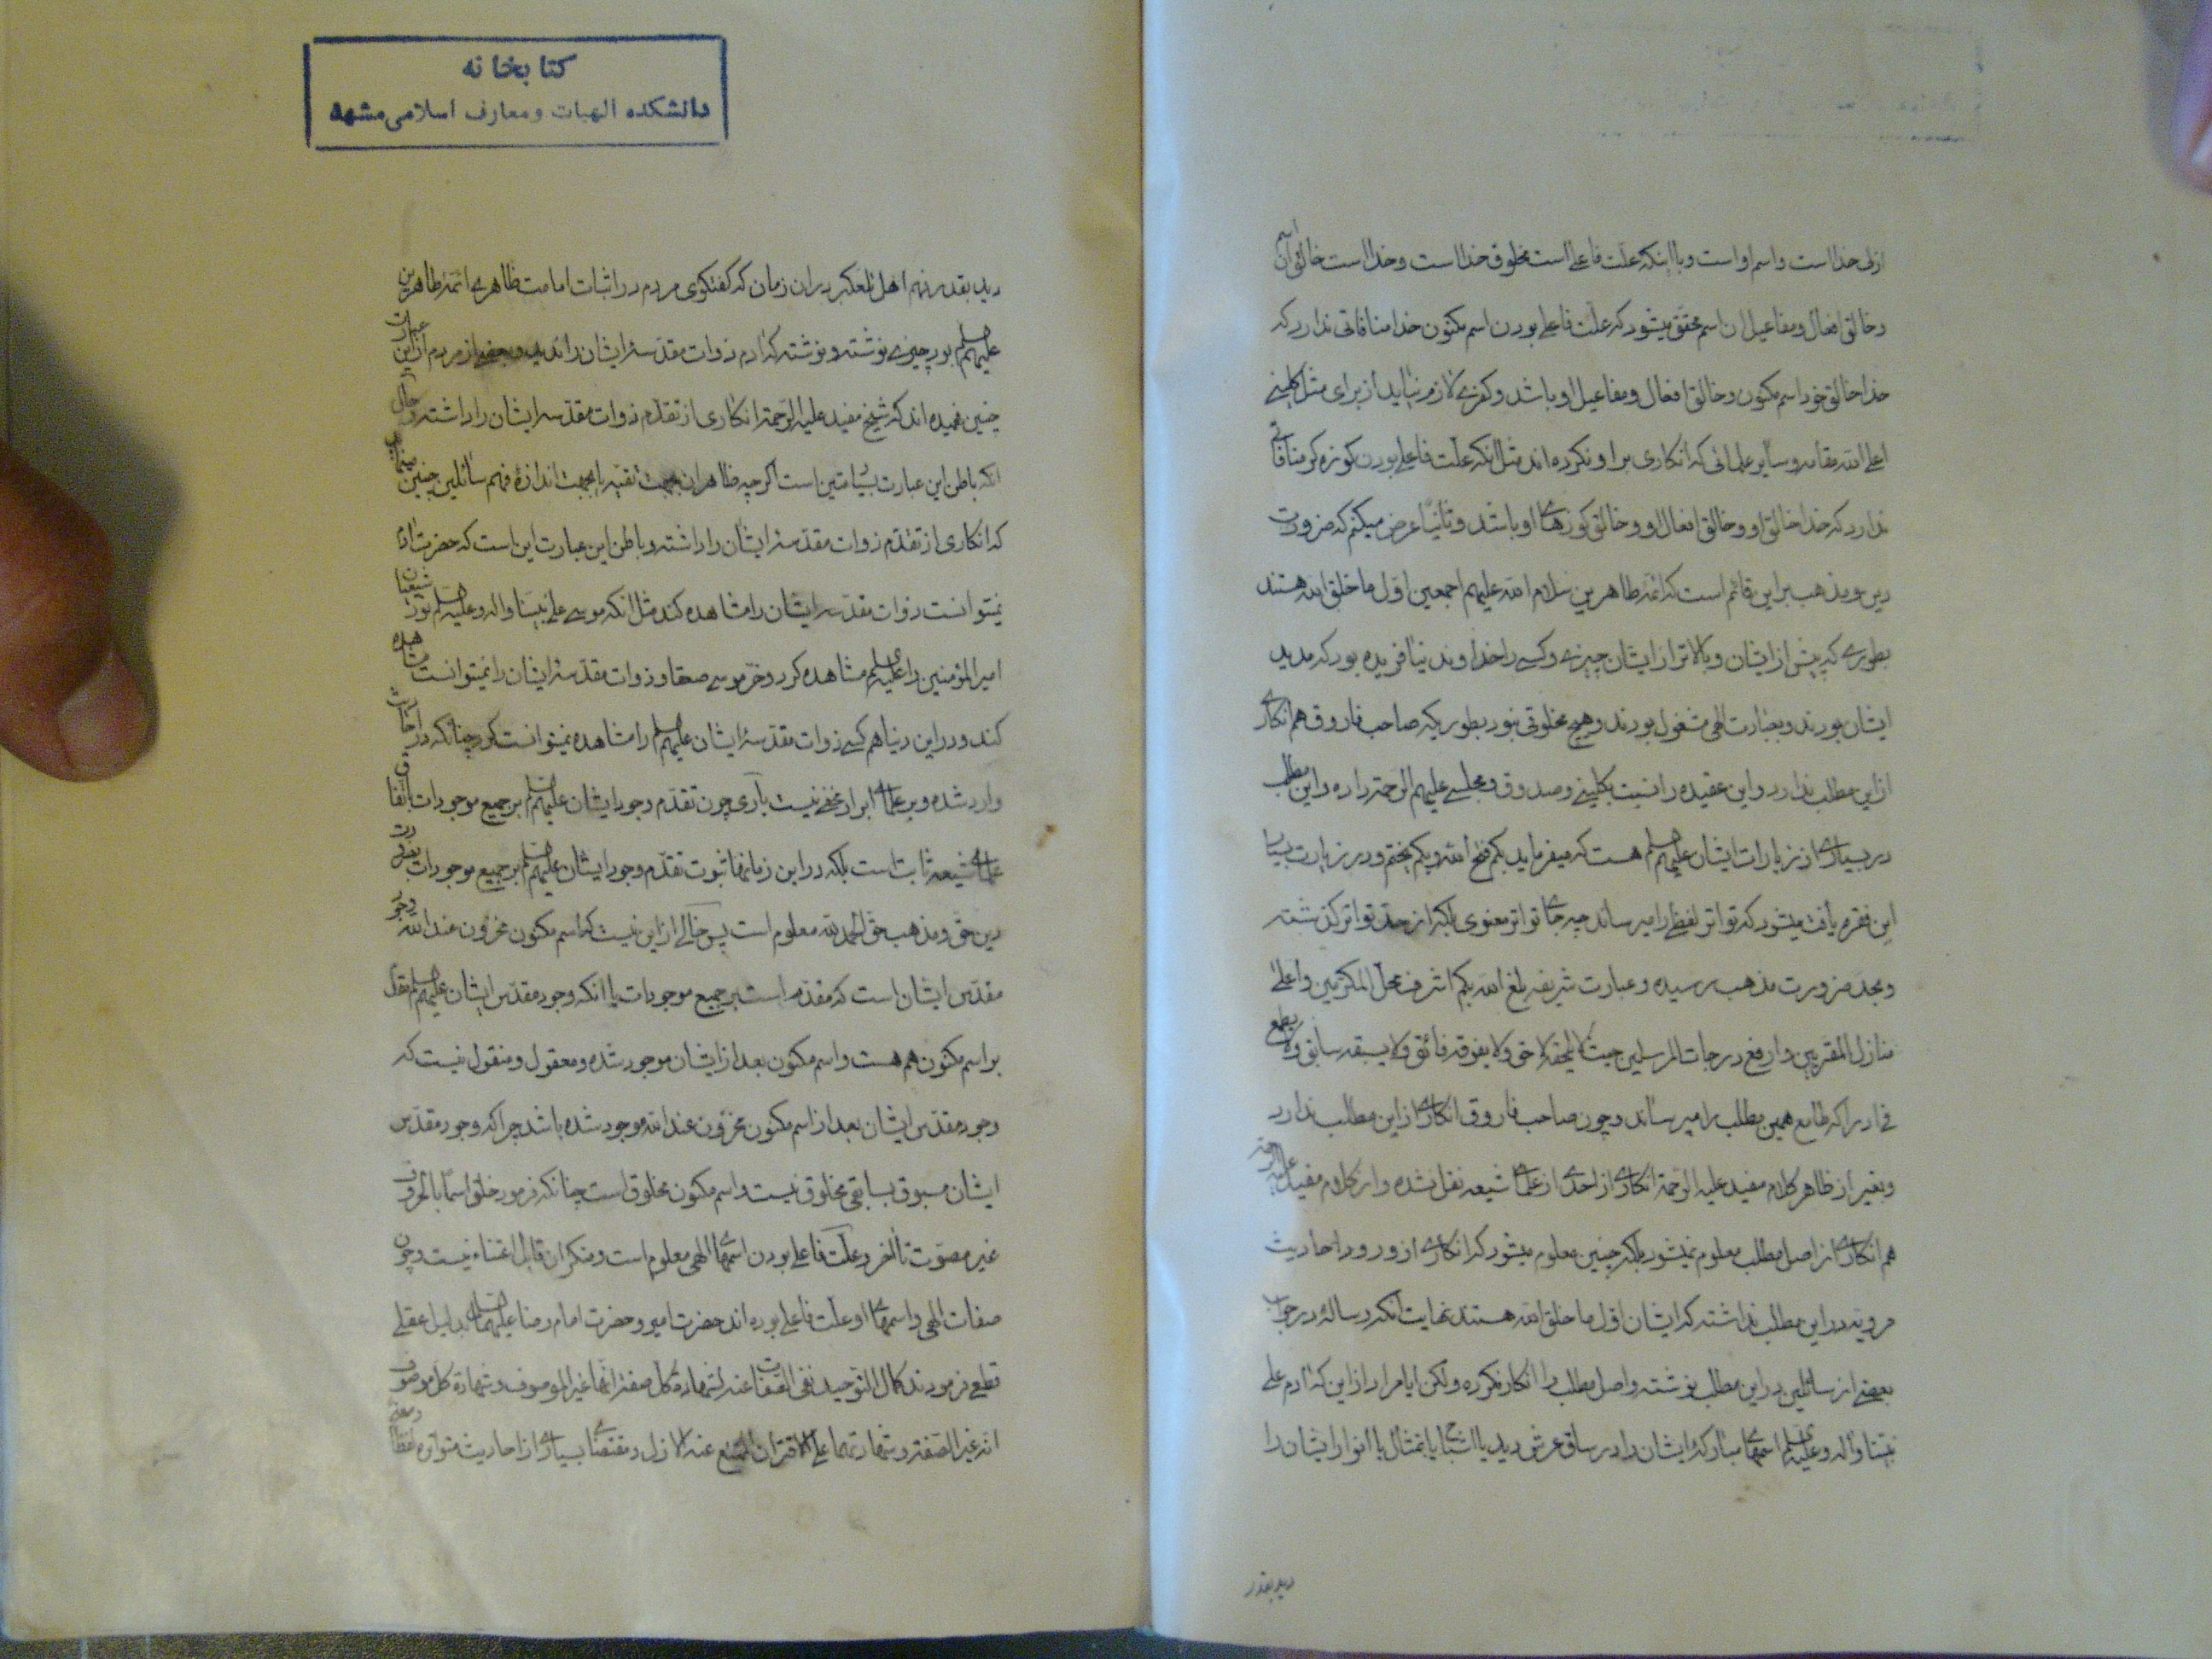 ازلی خدا است و اسم او است و با اینکه علت فاعلی است مخلوق خدا است و خدا است خالق آن اسم
و خالق افعال و مفاعیل آن اسم محقق میشود که علت فاعلی بودن اسم مکنون خدا منافاتی ندارد که
خدا خالق خود اسم مکنون و خالق افعال و مفاعیل او باشد و کفری لازم نیاید از برای مثل کلینی
اعلی الله مقامه و سایر علمائی که انکاری بر او نکرده‌اند مثل آنکه علت فاعلی بودن کوزه‌گر منافاتی
ندارد که خدا خالق او و خالق افعال او و خالق کوزهای او باشد و ثانیاً عرض میکنم که ضرورت
دین و مذهب بر این قائم است که ائمه طاهرین سلام الله علیهم اجمعین اول ما خلق الله هستند
بطوری که پیش از ایشان و بالاتر از ایشان چیزی و کسی را خداوند نیافریده بود که مدید
ایشان بودند و بعبادت الهی مشغول بودند و هیچ مخلوقی نبود بطوریکه صاحب فاروق هم انکاری
از این مطلب ندارد و این عقیده را نسبت بکلینی و صدوق و مجلسی علیهم الرحمة داده و این مطلب
در بسیاری از زیارات ایشان علیهم السلم هست که میفرماید بکم فتح الله و بکم یختم و در زیارت بسیار
این فقره یافت میشود که تواتر لفظی را میرساند چه جای تواتر معنوی بلکه از حد تواتر گذشته
و بحد ضرورت مذهب رسیده و عبارت شریفه بلغ الله بکم اشرف محل المکرمین و اعلی
منازل المقربین و ارفع درجات المرسلین حیث لا یلحقه لاحق و لا یفوقه فائق و لا یسبقه سابق و لا یطمع
فی ادراکه طامع همین مطلب را میرساند و چون صاحب فاروق انکاری از این مطلب ندارد
و بغیر از ظاهر کلام مفید علیه الرحمة انکاری از احدی از علمای شیعه نقل نشده و از کلام مفید علیه الرحمة
هم انکاری از اصل مطلب معلوم نمیشود بلکه چنین معلوم میشود که انکاری از ورود احادیث
مرویه در این مطلب نداشته که ایشان اول ما خلق الله هستند نهایت آنکه رساله در جواب
بعضی از سائلین در این مطلب نوشته و اصل مطلب را انکار نکرده ولکن ایا مراد از این که آدم علی
نبینا و آله و علیه السلم اسمهای مبارکه ایشان را در ساق عرش دید یا اشباح یا تمثال یا انوار ایشان را
دید بقدر
کتابخانه
دانشکده الهیات و معارف اسلامی مشهد
دید بقدر فهم اهل آن در آن زمان که گفتگوی مردم در اثبات امامت ظاهری ائمه طاهرین
علیهم السلم بود چیزی نوشته و نوشته که آدم ذوات مقدسه ایشان را ندید و بعضی از مردم از این عبارت
چنین فهمیده‌اند که شیخ مفید علیه الرحمة انکاری از تقدم ذوات مقدسه ایشان را داشته و حال
آنکه باطن این عبارت بسیار متین است اگرچه ظاهر آن بجهت تقیه یا بجهت اندازه فهم سائلین چنین مینماید
که انکاری از تقدم ذوات مقدسه ایشان را داشته و باطن این عبارت این است که حضرت آدم
نمیتوانست ذوات مقدسه ایشان را مشاهده کند مثل آنکه موسی علی نبینا و آله و علیه السلم نور شیعیان
امیر المؤمنین را علیه السلم مشاهده کرد و خر موسی صعقا و ذوات مقدسه ایشان را نمیتوانست مشاهده
کند و در این دنیا هم کسی ذوات مقدسه ایشان علیهم السلم را مشاهده نمیتوانست کرد چنانکه در احادیث
وارد شده و بر علمای ابرار مخفی نیست باری چون تقدم وجود ایشان علیهم السلم بر جمیع موجودات باتفاق
علمای شیعه ثابت است بلکه در این زمانها ثبوت تقدم وجود ایشان علیهم السلم بر جمیع موجودات بضرورت
دین حق و مذهب حق الحمد لله معلوم است پس خالی از این نیست که اسم مکنون مخزون عند الله وجود
مقدس ایشان است که مقدم است بر جمیع موجودات یا آنکه وجود مقدس ایشان علیهم السلم مقدم
بر اسم مکنون هم هست و اسم مکنون بعد از ایشان موجود شده و معقول و منقول نیست که
وجود مقدس ایشان بعد از اسم مکنون مخزون عند الله موجود شده باشد چرا که وجود مقدس
ایشان مسبوق بسابقی مخلوق نیست و اسم مکنون مخلوق است چنانکه فرمود خلق اسماً بالحروف
غیر مصوت تا آخر و علت فاعلی بودن اسمهای الهی معلوم است و منکر آن قابل اعتناء نیست و چون
صفات الهی و اسمهای او علت فاعلی بوده‌اند حضرت امیر و حضرت امام رضا علیهما السلم بدلیل عقلی
قطعی فرمودند کمال التوحید نفی الصفات عنه لشهادة کل صفة انها غیر الموصوف و شهادة کل موصوف
انه غیر الصفة و شهادتهما علی الاقتران الممتنع عنه الازل و مقتضای بسیاری از احادیث متواتره لفظاً و معنی